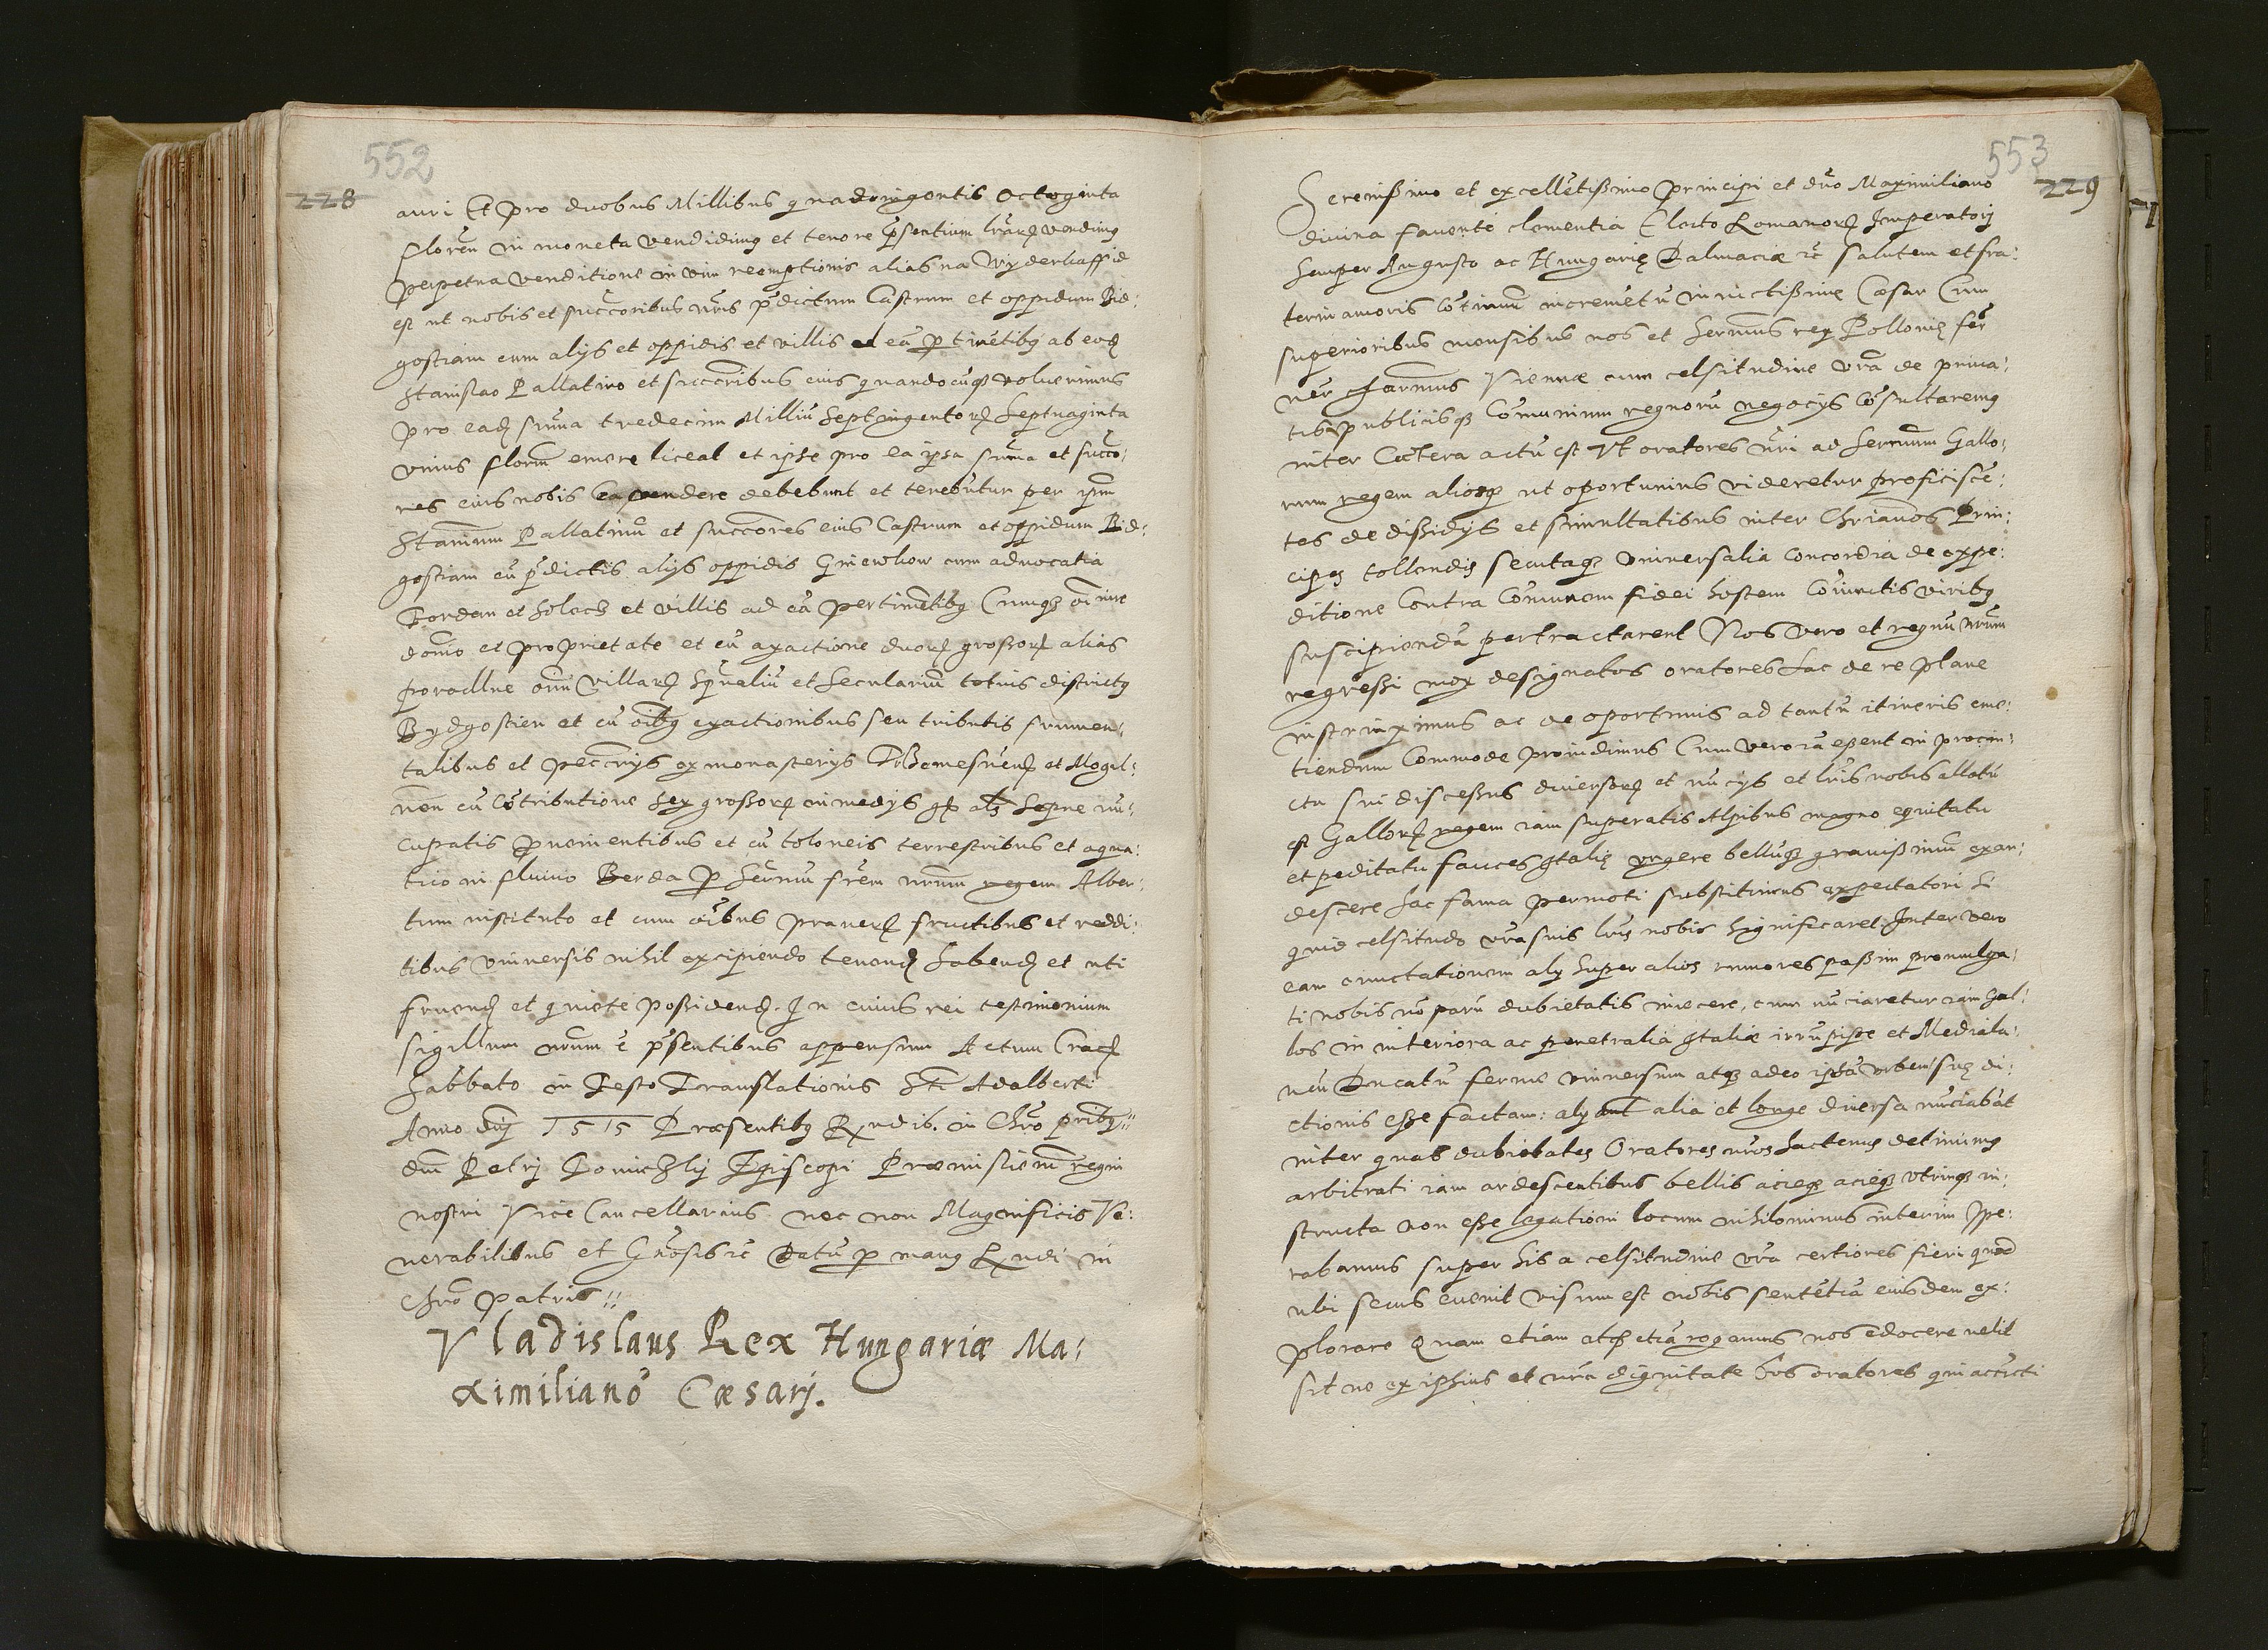 552
228
auri Et pro duobus Millibus quadringentis octoginta
floren̄ in moneta vendidimus et tenore p̄sentium lr̄arꝝ vendimus
perpetua venditione in vim reemptionis alias na Wyderkaff id
est ut nobis et succ̄oribus nr̄is p̄dictum Castrum et oppidum Bid:
gostiam cum alijs et oppidis et villis ad eā ꝑtinētibꝰ ab eodꝫ
Stanislao Pallatino et succ̄oribus eius quandocūqꝫ voluerimus
pro eadꝫ sum̄a tredecim Milliū Septingentorꝝ Septuaginta
vnius florēn emere liceat et ipse pro ea ipsa sum̄a et succō:
res eius nobis ea vendere debebunt et tenebūtur per ip̄m
Stan̄um Pallatinū et succ̄ores eius Castrum et oppidum Bid:
gostiam cū p̄dictis alijs oppidis Gniewkow cum aduocatia
Fordan et Solecz et villis ad eā pertinētibꝰ Cumqꝫ oī iure
dom̄io et proprietate et cū exactione duorꝝ grossorꝝ alias
poradlne om̄iū villarꝝ Sp̄ualiū et Seculariū totius districtꝰ
Bydgostien et cū oībꝰ exactionibus seu tributis frumen:
talibus et pecc̄nijs ex monasterijs Trzemesnēn̄ et Mogil:
nen̄ cū cōtributione sex grossorꝝ in medijs gꝭ als̄ Sepne nū:
cupatis ꝓuenientibus et cū toloneis terrestribus et aqua:
tico in fluuio Berda ꝑ Serm̄ū frēm nr̄um regem Alber:
tum instituto et cum oībus prauerꝝ fructibus et reddi:
tibus vniuersis nihil excipiendo tenendꝫ habendꝫ et uti
fruendꝫ et quiete possidendꝫ. In cuius rei testimonium
sigillum nr̄um ē p̄sentibus appensum Actum Cracꝫ
Sabbato in Festo Translationis Sti Adalberti
Anno dnj 1515 Præsentibꝰ Rndis. in Chrō pr̄ibꝰ:
dn̄i Petrj Tomiczkij Episcopi Præmislien̄ regni
nostri Vice Cancellarius nec non Magnificis Ve:
nerabilibus et Gn̄osis rc̄ Datū ꝑ manꝰ Rndi in
Chrō patris:
Vladislaus Rex Hungariæ Ma:
ximilianó Cæsarj.
553
229
Serenissimo et excellētissimo principi et dn̄o Maximiliano
diuina fauente clementia Electo Romanorꝝ Imperatorj
semper Augusto ac Hungarię Dalmaciæ rc̄ salutem et fra:
terni amoris cōtinuū incremētū inuictissime Cæsar Cum
superioribus mensibus nos et Sermus rex Pollonię fēr
nēr charm̄us Viennæ cum celsitudine vr̄a de priua:
tis publicisqꝫ Com̄unium regnorū negocijs cōsultaremꝰ
inter Cætera actū est Vt oratores nr̄i ad Sermum Gallo:
rum regem aliosqꝫ ut oportunius videretur proficiscē:
tes de dissidijs et simultatibus inter Chrianos Prin:
cipes tollendis secutaqꝫ vniuersalia concordia de expe:
ditione Contra Com̄unem fidei hostem cōiunctis viribꝰ
suscipiendā pertractarent Nos vero et regnū nr̄um
regressi mox designatos oratores hac de re plane
instruximus ac de oportunis ad tantū itineris eme:
tiendum Commode prouidimus Cum vero iā essent in procin:
ctu sui discessus diuersorꝝ et nūcijs et lr̄is nobis allatū
est Gallorꝝ regem iam superatis Alpibus magno equitatu
et peditatu fauces Italię vrgere bellūqꝫ grauissimū exar:
descere hac fama permoti substitimus expectatori si
quid celsitudo vr̄a suis lr̄is nobis significaret Inter vero
eam cunctationem alij super alios rumores passim promulga:
ti nobis nō parū dubietatis iniecere, cum nūciaretur iam Gal:
los in interiora ac penetralia Italiæ irrūpisse et Mediola:
neū Ducatū ferme vniuersum atqꝫ adeo ip̄sā vrbem suę di:
ctionis esse factam: alij aut̄ alia et longe diuersa nūciabāt
inter quas dubietates Oratores nr̄os hactenus detinuimꝰ
arbitrati iam ardescentibus bellis acieqꝫ acieqꝫ vtrinqꝫ in:
structa non esse legationi locum nihilominus interim spe:
rabamus super his a celsitudine vr̄a certiores fieri quod
ubi secus euenit visum est nobis sentētiā eiusdem ex:
plorare Quam etiam atqꝫ etiā rogamus nos edocere velit
sit ne ex ipsius et nr̄a dignitate hos oratores qui accīcti